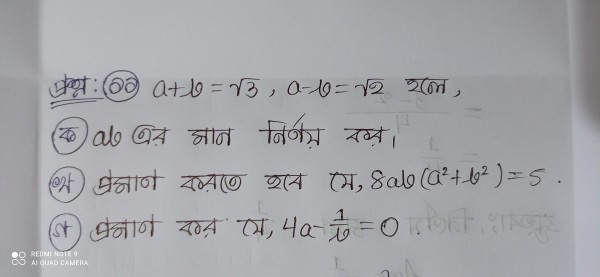 প্রশ্ন : ১১ a+b = √3, a-b = √2 হলে,
ক ab এর মান নির্ণয় কর।
খ প্রমাণ করতে হবে যে, 8ab(a²+b²) = 5.
গ প্রমাণ কর যে, 4a - 1/b = 0.
REDMI NOTE 9
AI QUAD CAMERA